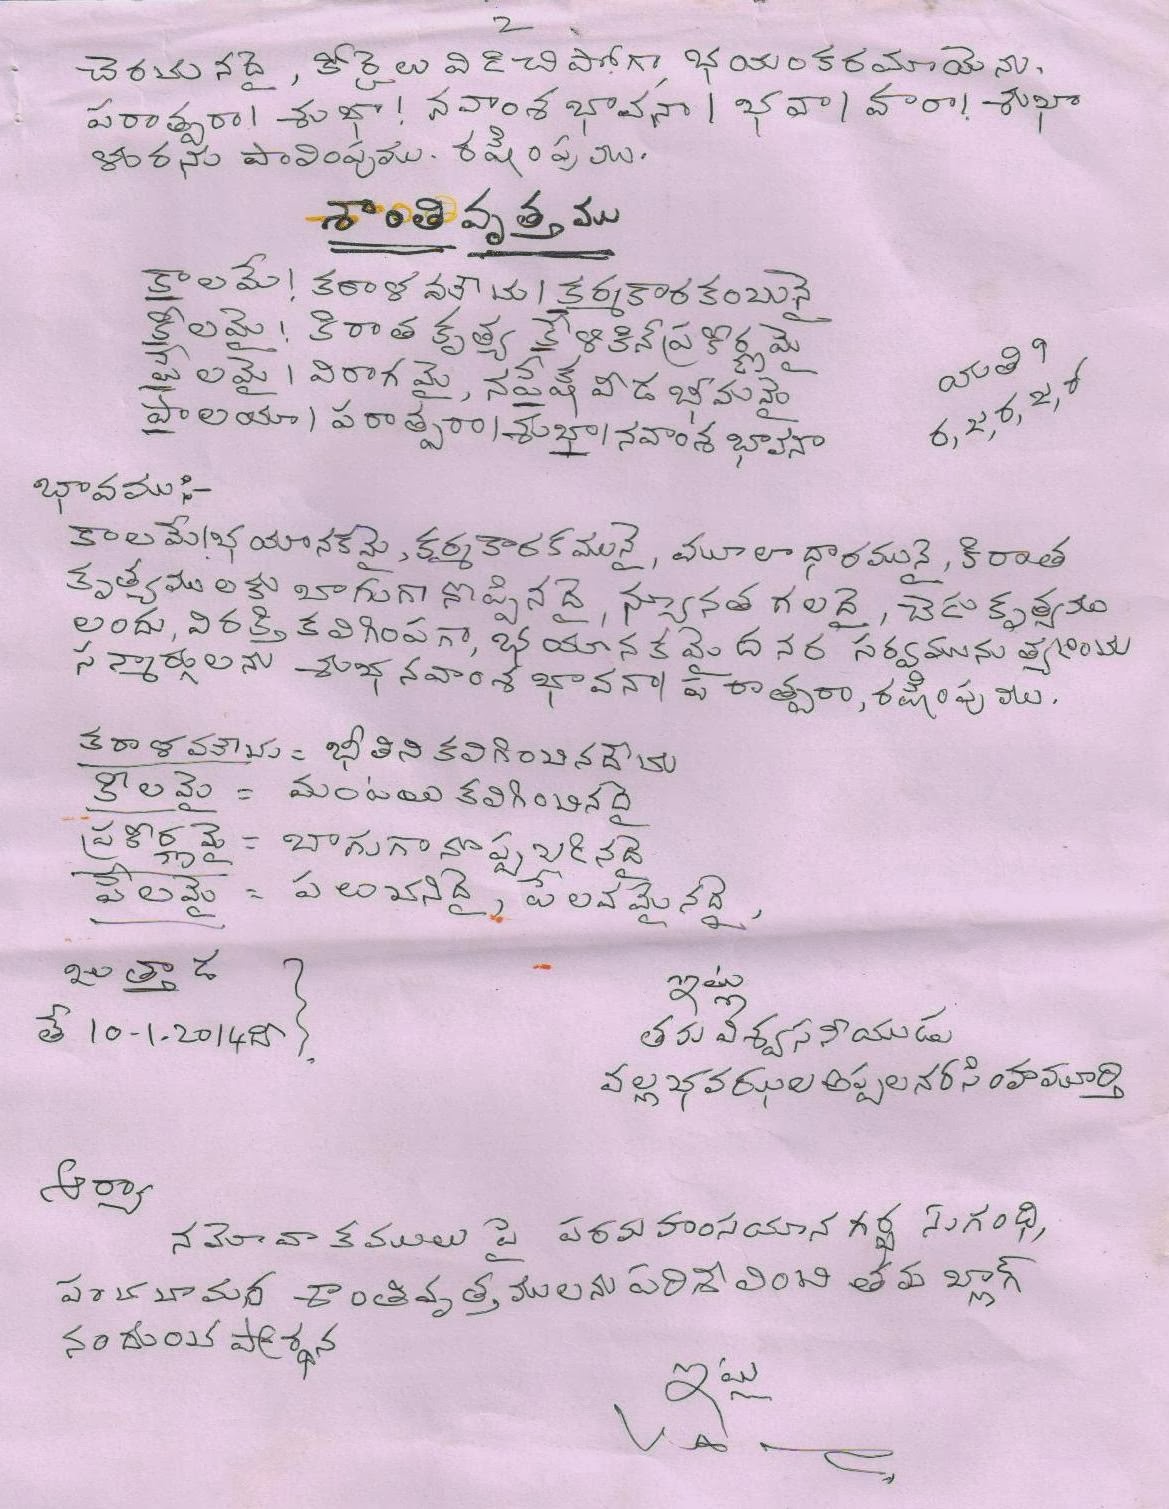 2
చెరచునదై, కోర్కెలు విడిచిపోగా, భయంకరమాయెను.
పరాత్పరా! శుభా! నవాంశ భావనా! భవా! హరా! శుభా
ళురను పాలింపుము. రక్షింపుము.
శాంతి వృత్తము
కాలమే! కరాళ మౌచు! కర్మకారకంబునై
కీలమై! కిరాత కృత్య కేళికిన్ ప్రకీర్ణమై
పేలమై! విరాగమై, భీమమై
పాలయా! పరాత్పరా! శుభా! నవాంశ భావనా
యతి 9
ర, జ, ర, జ, ర
భావము:-
కాలమే! భయానకమై, కర్మకారకమునై, మూలాధారమునై, కిరాత
కృత్యములకు బాగుగా నొప్పినదై, న్యూనత గలదై, చెడు కృత్యము
లందు, విరక్తి కలిగింపగా, భయానకమైద నర సర్వమును త్యజించు
సన్మార్గులను శుభ నవాంశ భావనా! పరాత్పరా, రక్షింపుము.
కరాళమౌచు = భీతిని కలిగించినదౌచు
కీలమై = మంటయు కలిగించినదై
ప్రకీర్ణమై = బాగుగా నొప్పబడినదై
పేలమై = పలుచనిదై, పేలవమైనదై,
జుత్తాడ
తే 10-1-2014ది
ఇట్లు
తమ విశ్వసనీయుడు
వల్లభవఝల అప్పల నరసింహమూర్తి
ఆర్యా
నమోవాకములు పై పరమహంసయాన గర్భ సుగంధి,
పంచచామర శాంతివృత్తములను పరిశీలించి తమ బ్లాగ్
నందుంచ ప్రార్థన
ఇట్లు